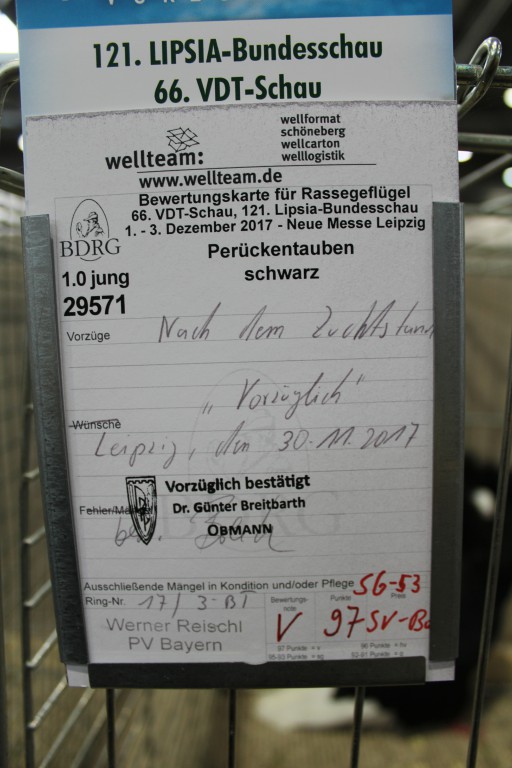 121. LIPSIA-Bundesschau
66. VDT-Schau
wellteam:
wellformat
schöneberg
wellcarton
welllogistik
www.wellteam.de
BDRG
Bewertungskarte für Rassegeflügel
66. VDT-Schau, 121. Lipsia-Bundesschau
1. - 3. Dezember 2017 - Neue Messe Leipzig
Perückentauben
schwarz
1.0 jung
29571
Vorzüge
Nach dem
"Vorzüglich"
Wünsche
Leipzig, den 30.11.2017
Vorzüglich bestätigt
Dr. Günter Breitbarth
OBMANN
BDRG
Ausschließende Mängel in Kondition und/oder Pflege
SG-53
Ring-Nr. 17/ 3-BT
Bewertungs-
note
V
Punkte
97
Preis
SV-
Werner Reischl
PV Bayern